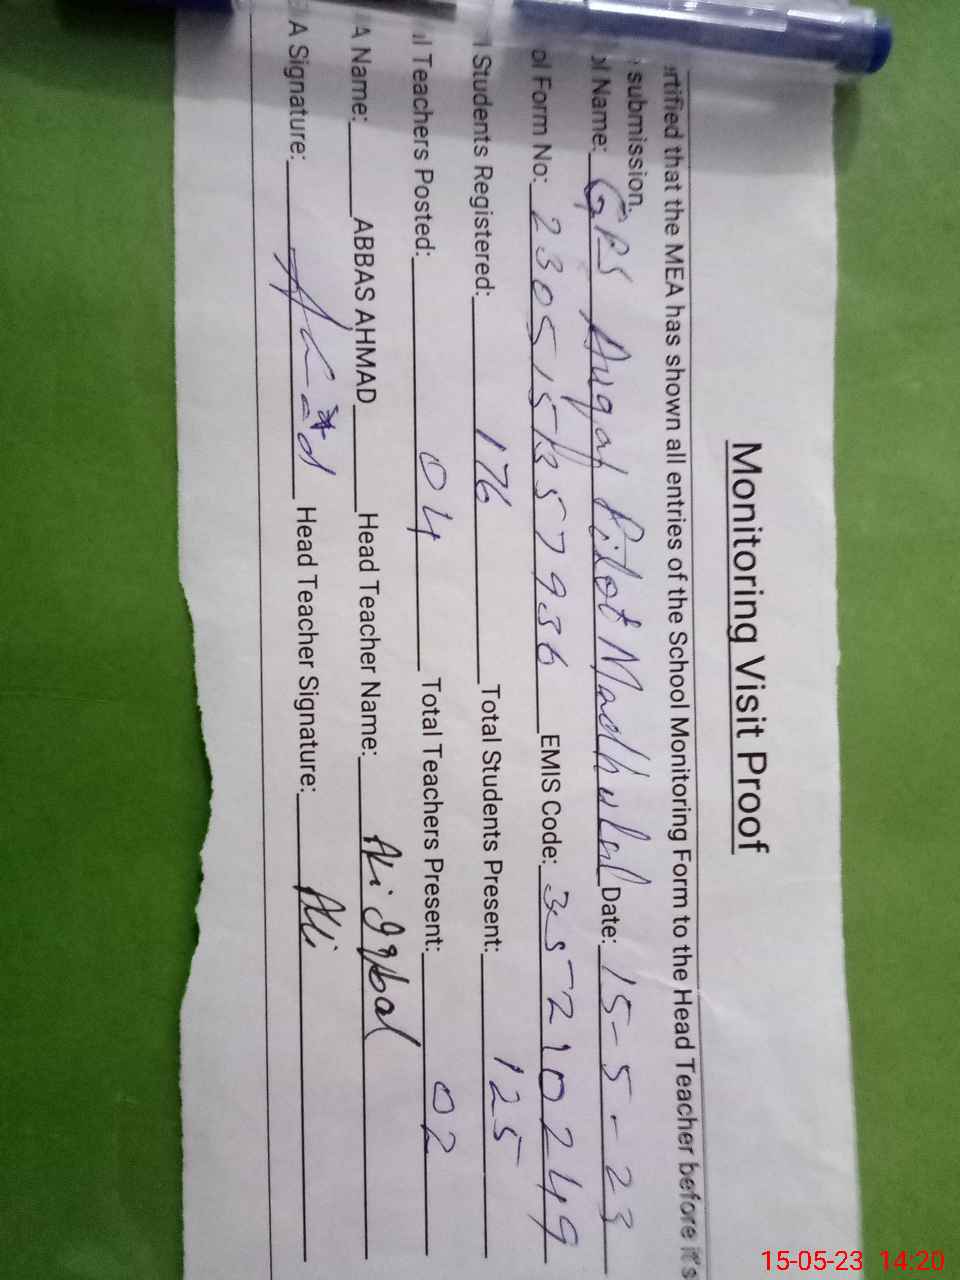 Monitoring Visit Proof
rtified that the MEA has shown all entries of the School Monitoring Form to the Head Teacher before it's
submission.
ol Name: GPS Auqaf Pilot Date: 15-5-23
ol Form No: 230515 357936 EMIS Code: 35210249
l Students Registered: 176 Total Students Present: 125
al Teachers Posted: 04 Total Teachers Present: 02
A Name: ABBAS AHMAD Head Teacher Name: Ali Iqbal
A Signature: Head Teacher Signature: Ali
15-05-23 14:20